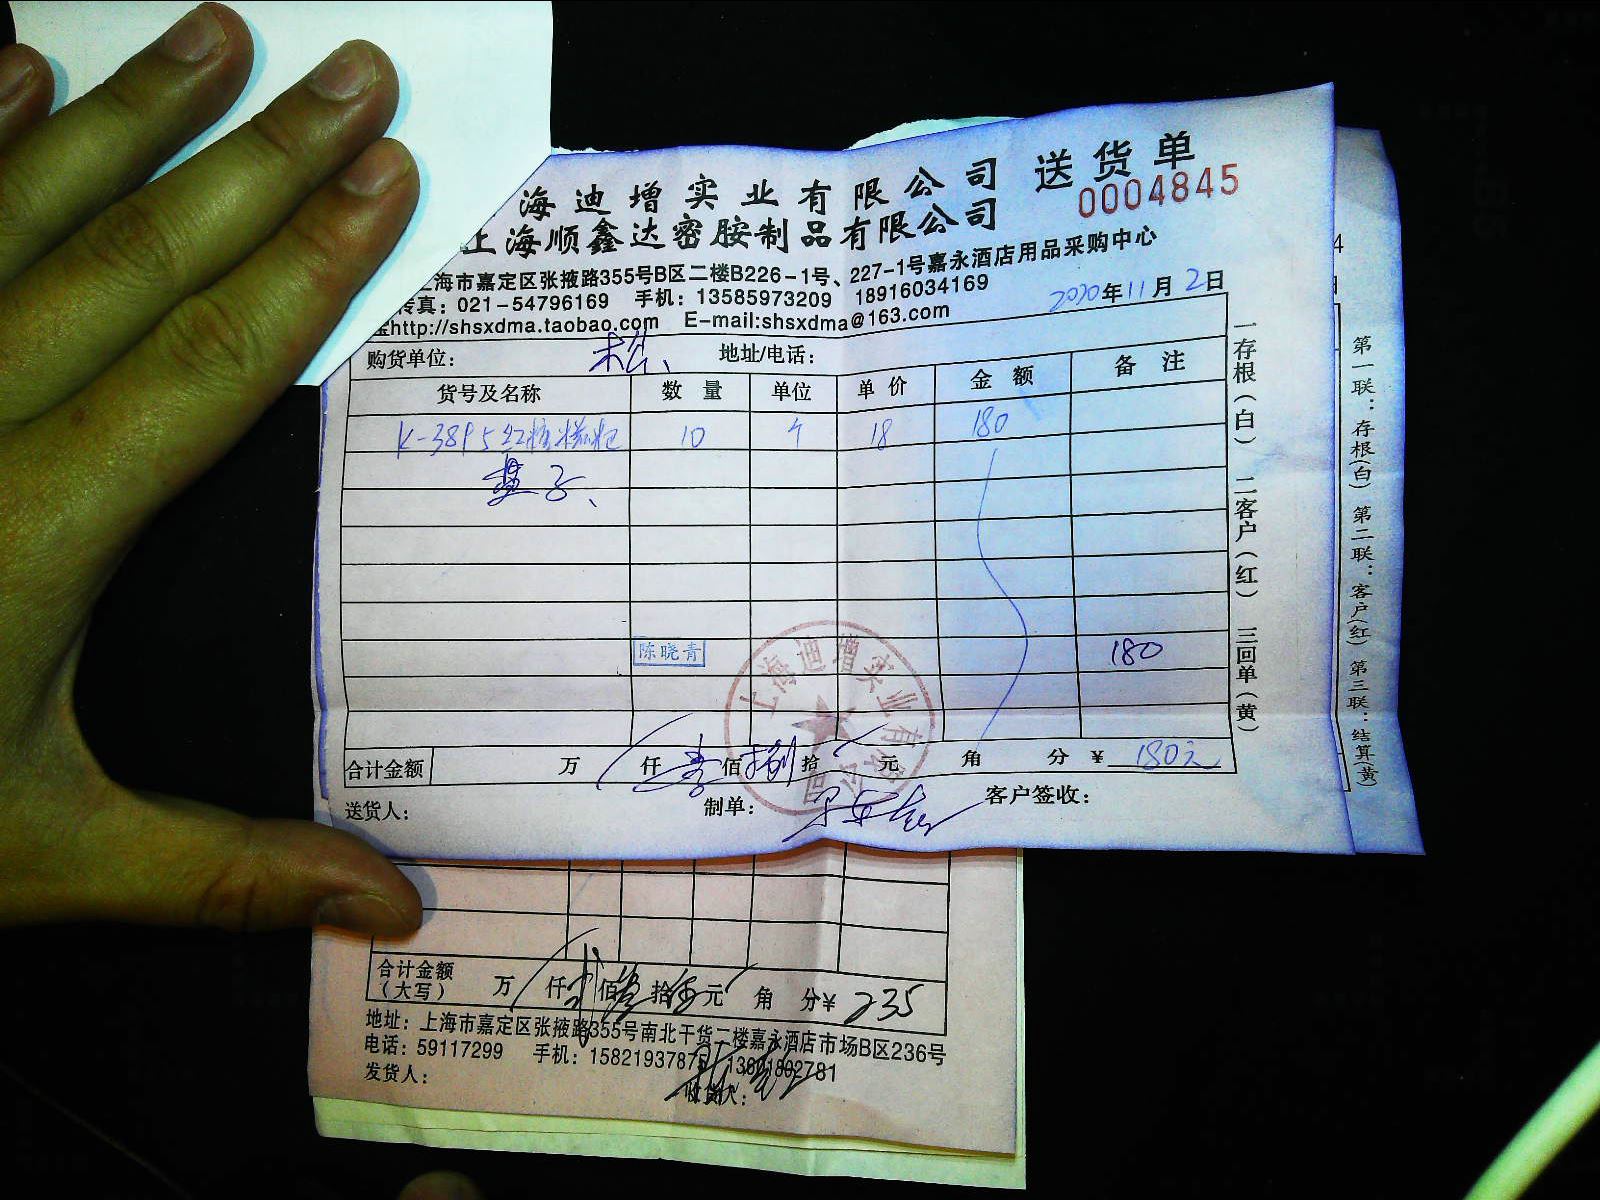 海迪增实业有限公司 送货单
上海顺鑫达密胺制品有限公司 0004845
上海市嘉定区张掖路355号B区二楼B226-1号、227-1号嘉永酒店用品采购中心
传真：021-54796169 手机：13585973209 18916034169
http://shsxdma.taobao.com E-mail:shsxdma@163.com
2020年11月2日
购货单位： 地址/电话：
货号及名称 数量 单位 单价 金额 备注
K-3895红 10 个 18 180
盘子、
陈晓青
180
上海迪增实业有限公司
合计金额 万 仟 壹 佰 捌 拾 元 角 分 ¥ 180元
送货人： 制单： 客户签收：
一存根（白） 二客户（红） 三回单（黄）
4
日
第一联：存根(白) 第二联：客户(红) 第三联：结算(黄)
合计金额
（大写） 万 仟 佰 拾 元 角 分¥ 235
地址：上海市嘉定区张掖路355号南北干货二楼嘉永酒店市场B区236号
电话：59117299 手机：
发货人： 收货人：